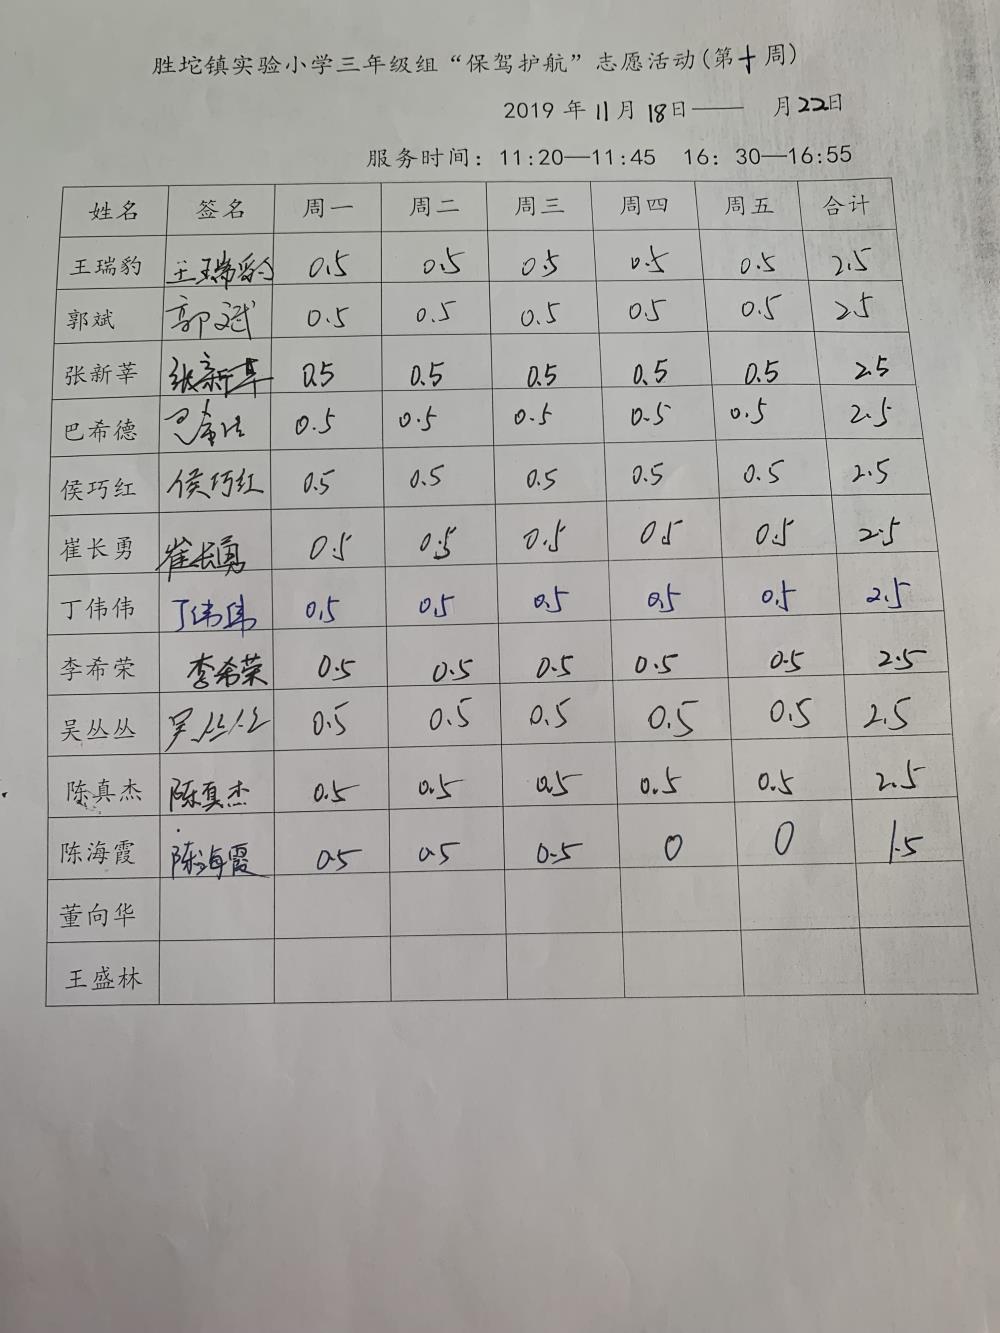 胜坨镇实验小学三年级组“保驾护航”志愿活动(第十周)
2019 年 11月 18日—— 月22日
服务时间：11:20—11:45 16：30—16:55
姓名 签名 周一 周二 周三 周四 周五 合计
王瑞豹 王瑞豹 0.5 0.5 0.5 0.5 0.5 2.5
郭斌 郭斌 0.5 0.5 0.5 0.5 0.5 2.5
张新莘 张新莘 0.5 0.5 0.5 0.5 0.5 2.5
巴希德 巴希德 0.5 0.5 0.5 0.5 0.5 2.5
侯巧红 侯巧红 0.5 0.5 0.5 0.5 0.5 2.5
崔长勇 崔长勇 0.5 0.5 0.5 0.5 0.5 2.5
丁伟伟 丁伟伟 0.5 0.5 0.5 0.5 0.5 2.5
李希荣 李希荣 0.5 0.5 0.5 0.5 0.5 2.5
吴丛丛 吴丛丛 0.5 0.5 0.5 0.5 0.5 2.5
陈真杰 陈真杰 0.5 0.5 0.5 0.5 0.5 2.5
陈海霞 陈海霞 0.5 0.5 0.5 0 0 1.5
董向华
王盛林